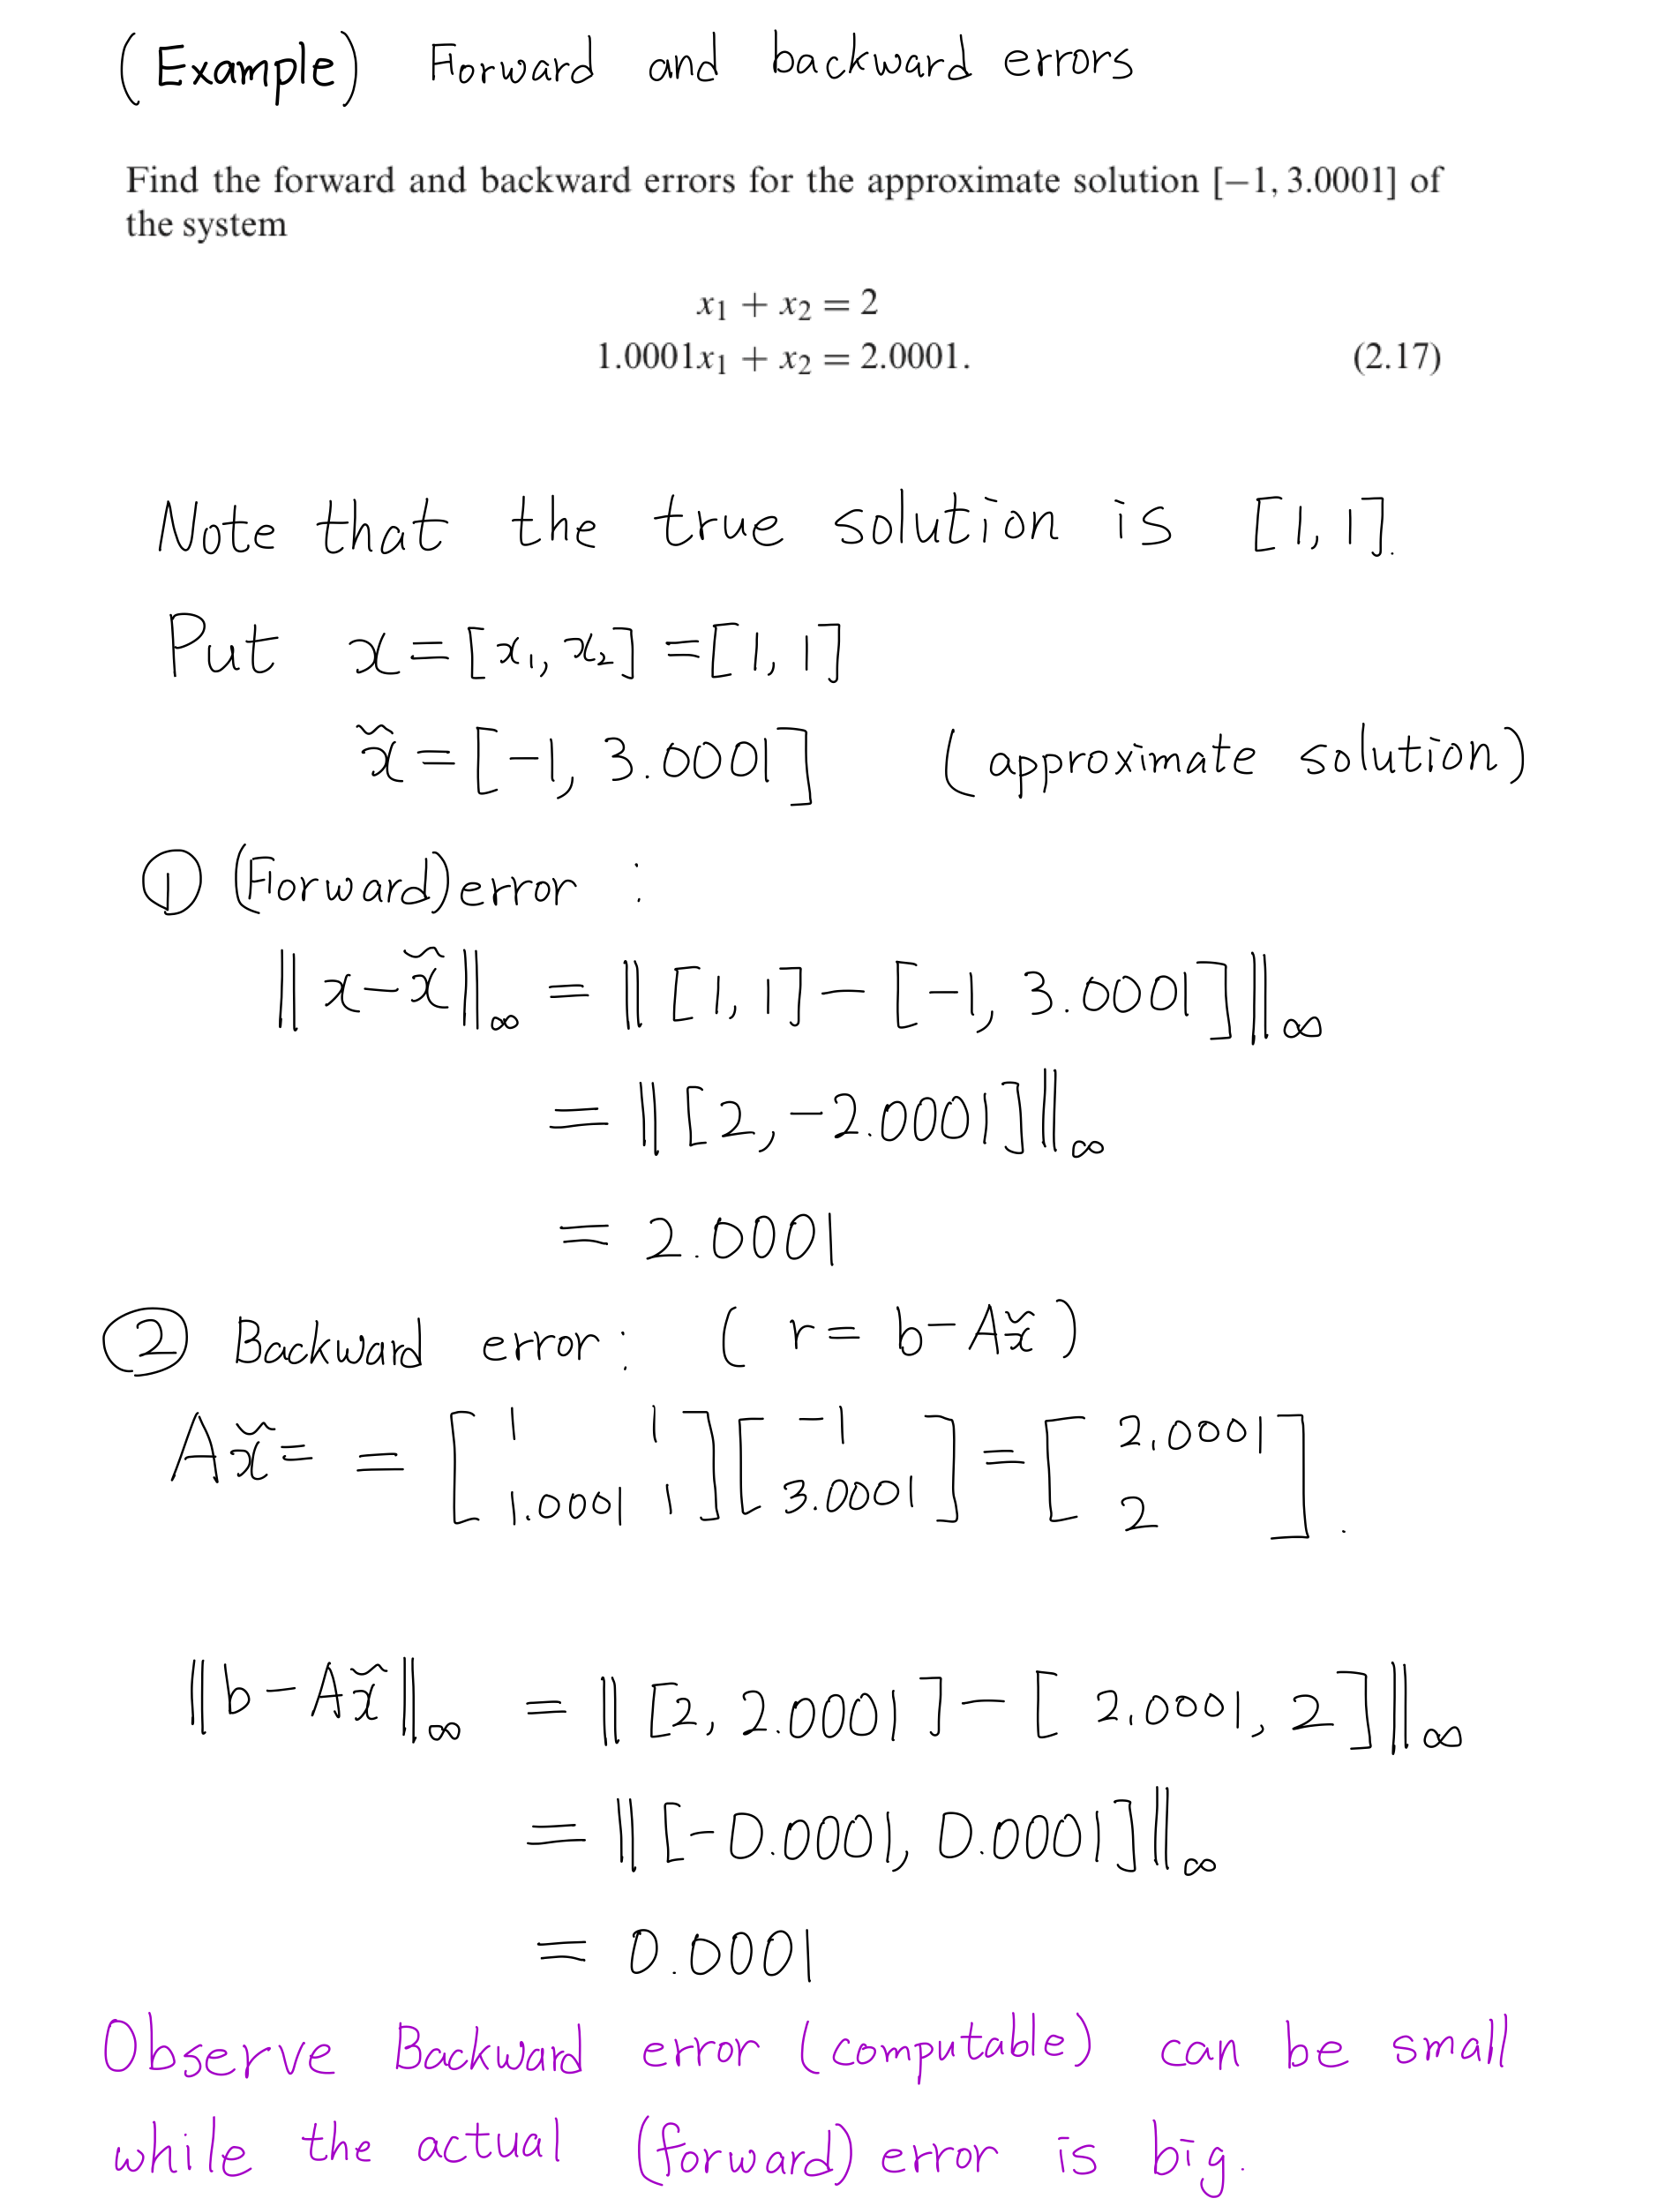 (Example) Forward and backward errors
Find the forward and backward errors for the approximate solution [−1, 3.0001] of
the system
x₁ + x₂ = 2
1.0001x₁ + x₂ = 2.0001. (2.17)
Note that the true solution is [1, 1].
Put x = [x₁, x₂] = [1, 1]
x̃ = [-1, 3.0001] (approximate solution)
① (Forward) error :
‖x - x̃‖∞ = ‖[1, 1] - [-1, 3.0001]‖∞
= ‖[2, -2.0001]‖∞
= 2.0001
② Backward error: ( r = b - Ax̃ )
Ax̃ = = [1 1; 1.0001 1] [-1; 3.0001] = [2.0001; 2].
‖b - Ax̃‖∞ = ‖[2, 2.0001] - [2.0001, 2]‖∞
= ‖[-0.0001, 0.0001]‖∞
= 0.0001
Observe Backward error (computable) can be small
while the actual (forward) error is big.